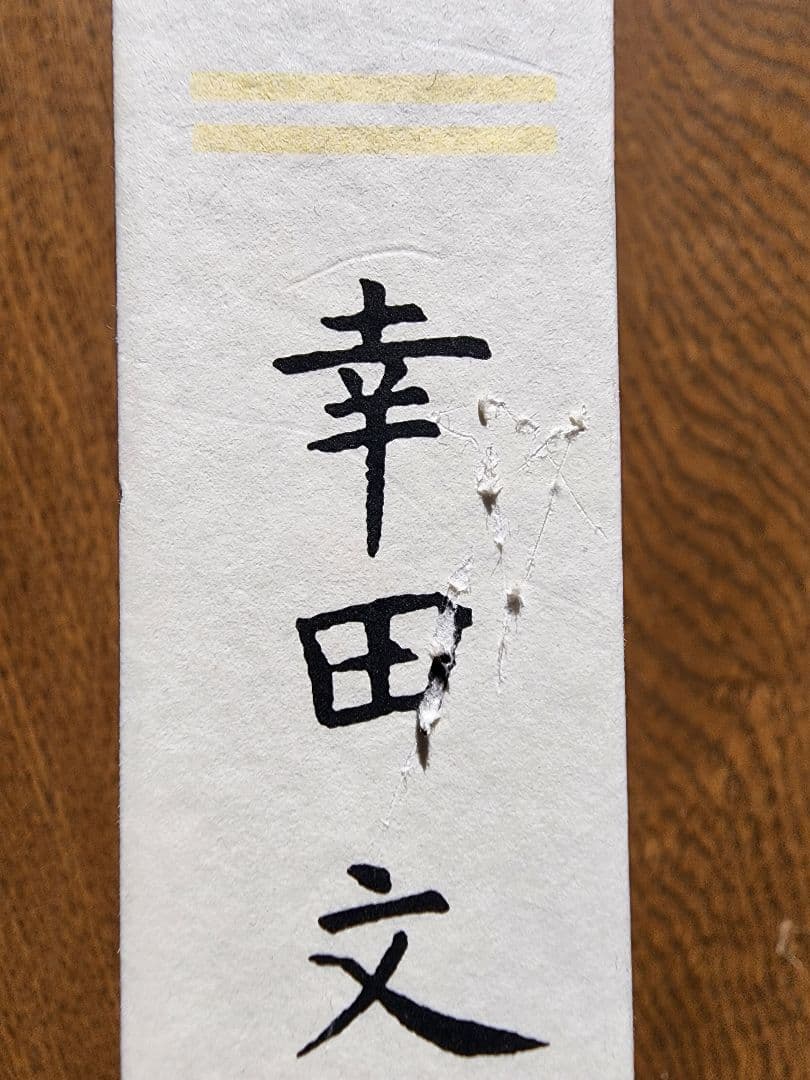 幸田文